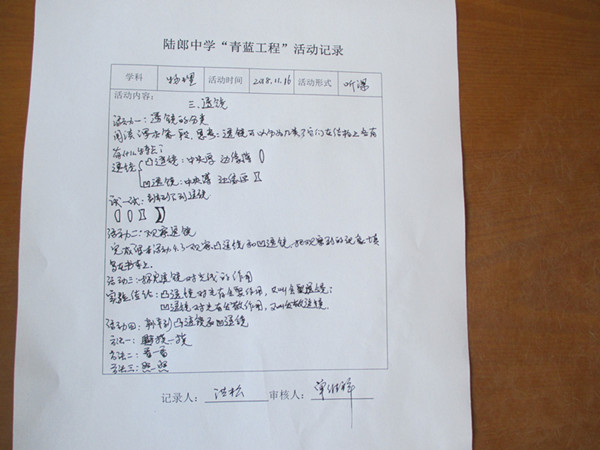 陆郎中学“青蓝工程”活动记录
学科 物理 活动时间 2018.11.16 活动形式 听课
活动内容：
三、透镜
活动一：透镜的分类
阅读课本 思考：透镜可以分为几类？它们在结构上各有
有什么特点？
透镜
凸透镜：中央厚 边缘薄
凹透镜：中央薄 边缘厚
议一议：
活动二：观察透镜
完成课本活动4.3 观察凸透镜和凹透镜，把观察到的现象填
写在书本上。
活动三：探究透镜对光线的作用
实验结论：凸透镜对光有会聚作用，又叫会聚透镜；
凹透镜对光有发散作用，又叫发散透镜。
活动四：辨别凸透镜和凹透镜
方法一：摸一摸
方法二：看一看
方法三：照一照
记录人： 审核人：